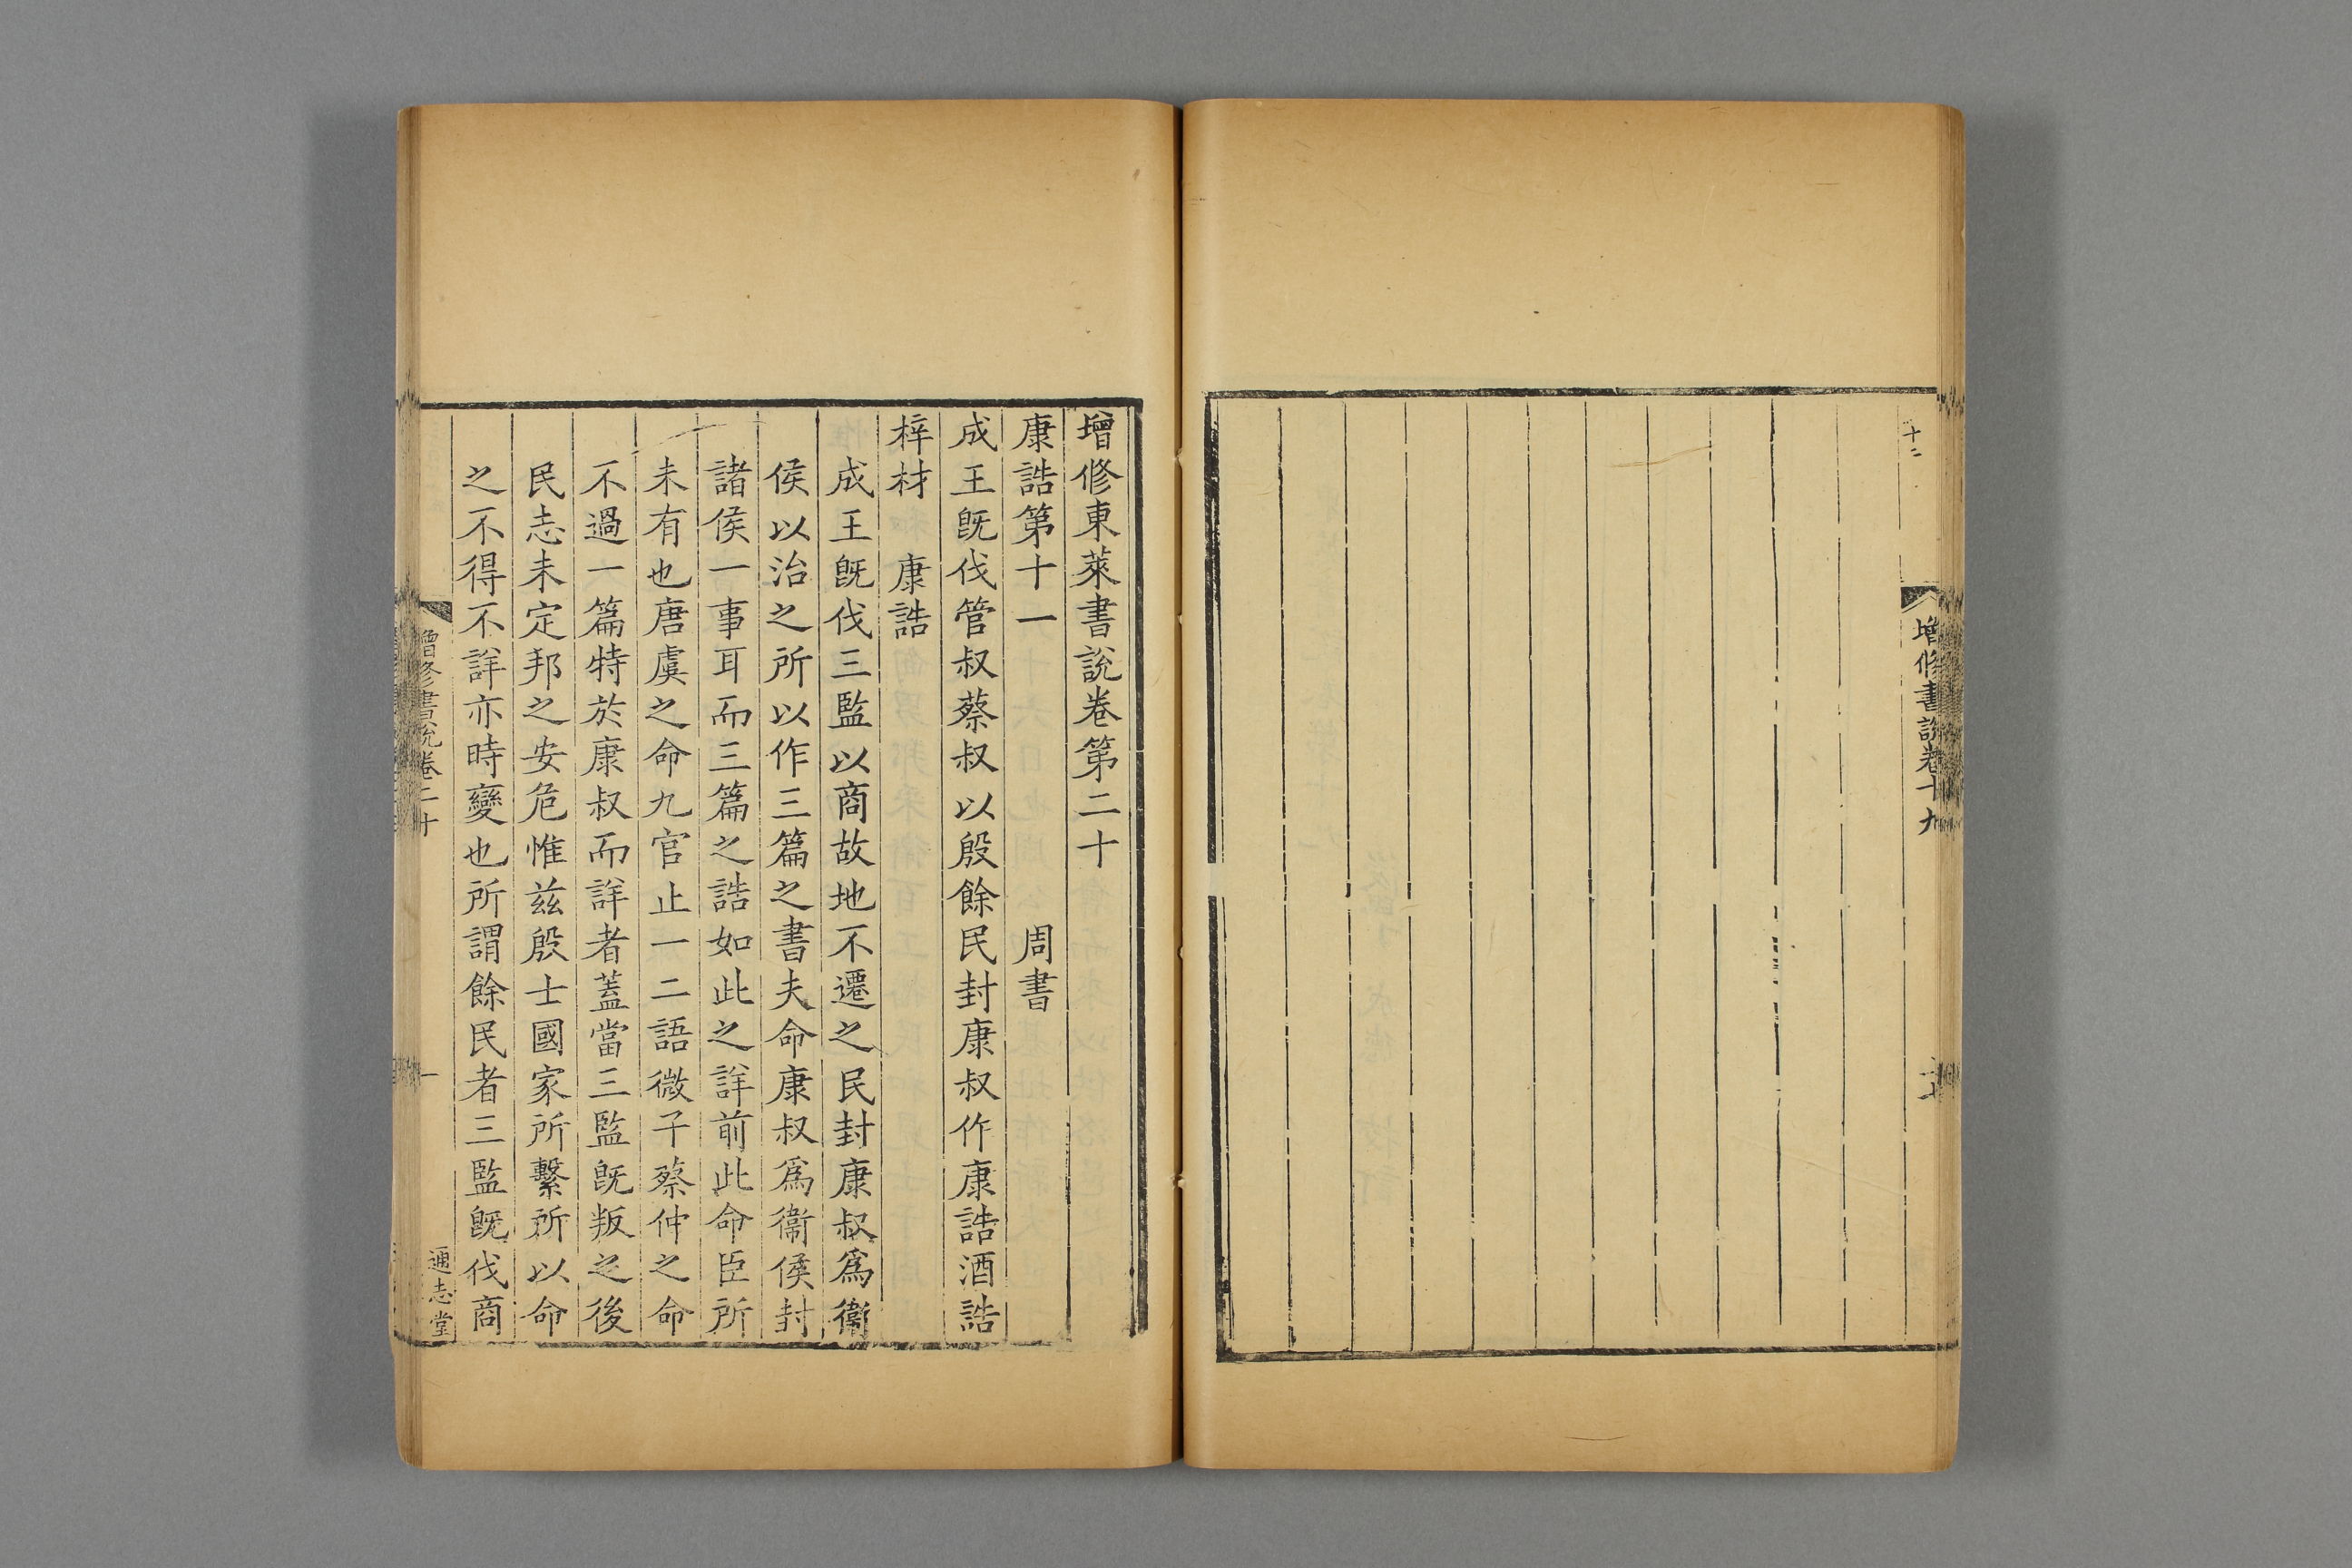 十二
增修書說卷十九
增修東萊書說卷第二十
康誥第十一 周書
成王既伐管叔蔡叔以殷餘民封康叔作康誥酒誥
梓材 康誥
成王既伐三監以商故地不遷之民封康叔爲衞
侯以治之所以作三篇之書夫命康叔爲衞侯封
諸侯一事耳而三篇之誥如此之詳前此命臣所
未有也唐虞之命九官止一二語微子蔡仲之命
不過一篇特於康叔而詳者蓋當三監既叛之後
民志未定邦之安危惟兹殷士國家所繫所以命
之不得不詳亦時變也所謂餘民者三監既伐商
增修書說卷二十
一
通志堂